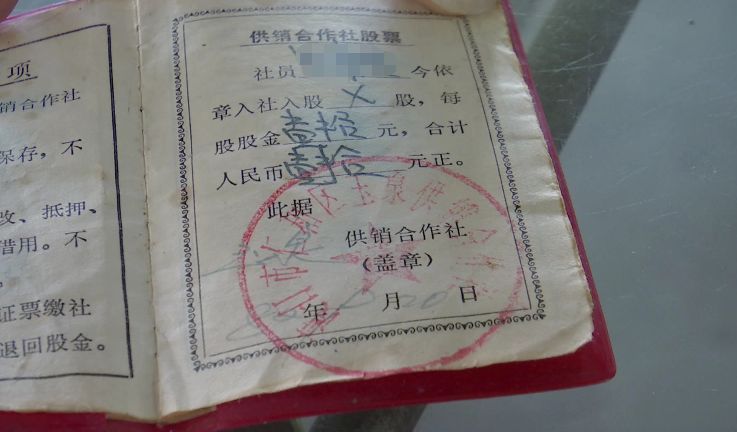 项
销合作社
保存，不
改、抵押、
借用。不
证票缴社
退回股金。
供销合作社股票
社员 今依
章入社入股 X 股，每
股股金壹拾元，合计
人民币壹拾元正。
此据
供销合作社
（盖章）
年 月 20 日
市 区玉泉供销